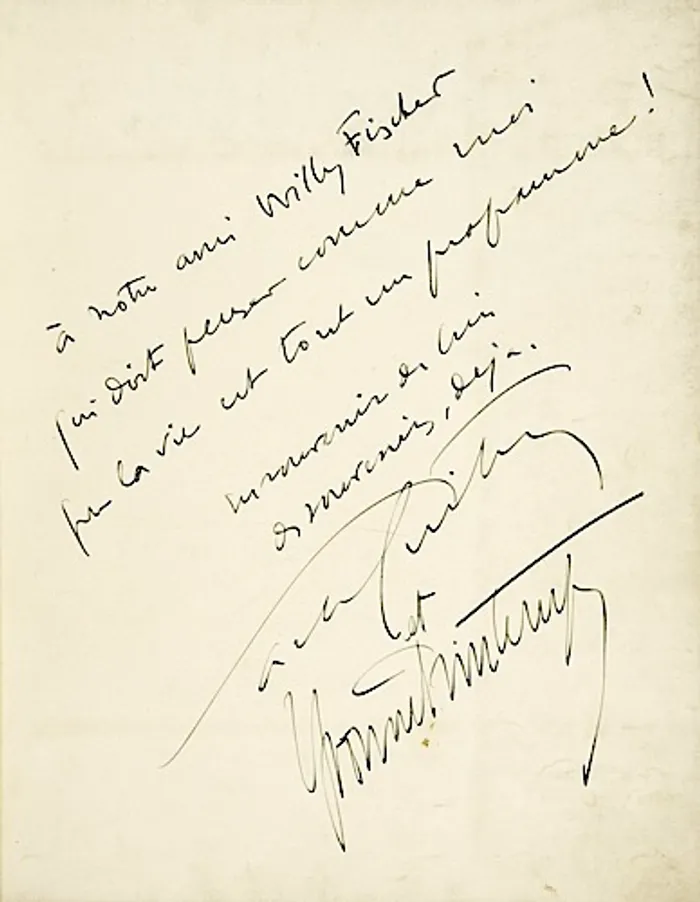 à notre ami Willy Fischer
qui doit penser comme moi
que la vie est tout un programme !
en souvenir de
de souvenirs, déjà.
Sacha Guitry
et
Yvonne Printemps